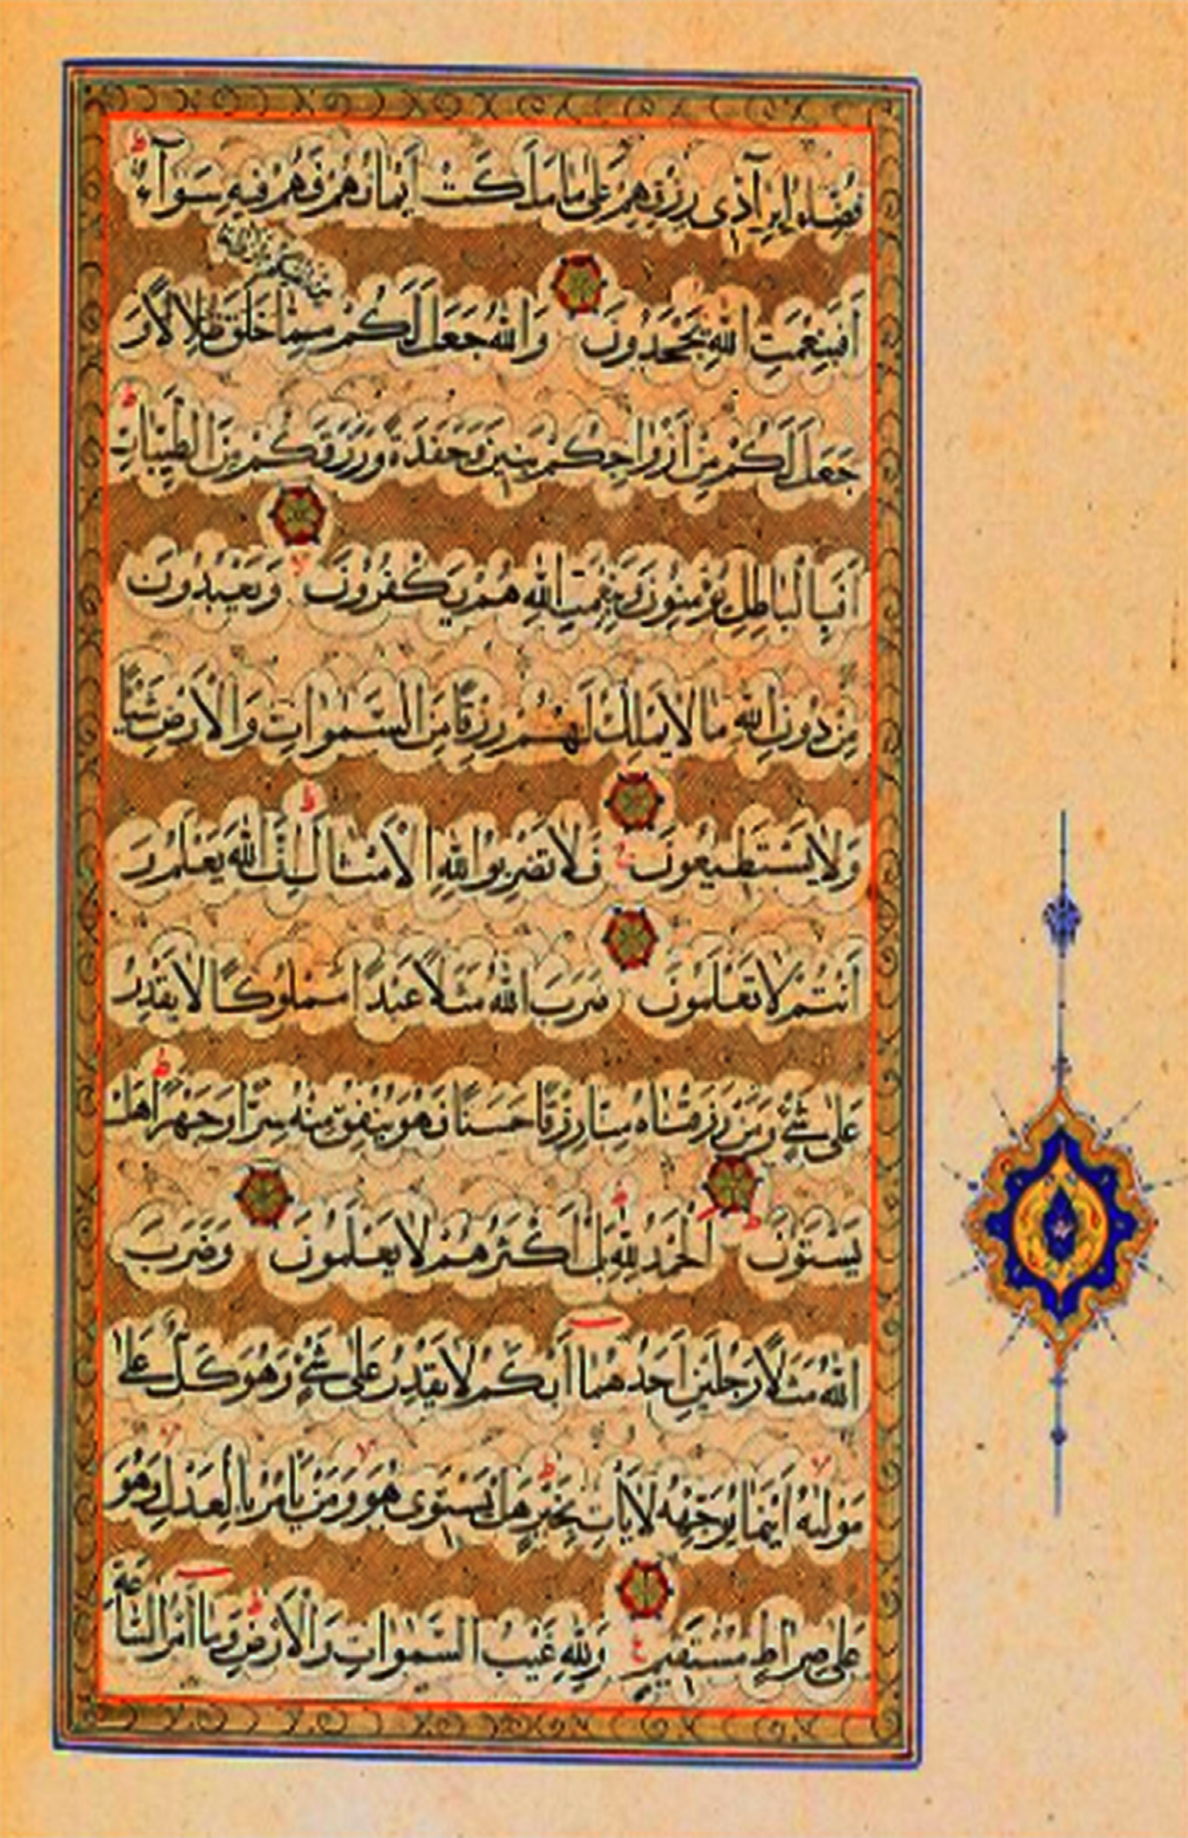 فُضِّلُوا بِرَآدِّى رِزْقِهِمْ عَلٰى مَا مَلَكَتْ اَيْمَانُهُمْ فَهُمْ فِيهِ سَوَآءٌ
من انفسكم ازواجا
اَفَبِنِعْمَتِ اللهِ يَجْحَدُونَ وَاللهُ جَعَلَ لَكُمْ مِمَّا خَلَقَ ظِلَالًا وَ
جَعَلَ لَكُمْ مِنْ اَزْوَاجِكُمْ بَنِينَ وَحَفَدَةً وَرَزَقَكُمْ مِنَ الطَّيِّبَاتِ
اَفَبِالْبَاطِلِ يُؤْمِنُونَ وَبِنِعْمَتِ اللهِ هُمْ يَكْفُرُونَ وَيَعْبُدُونَ
مِنْ دُونِ اللهِ مَا لَا يَمْلِكُ لَهُمْ رِزْقًا مِنَ السَّمٰوَاتِ وَالْاَرْضِ شَيْئًا
وَلَا يَسْتَطِيعُونَ فَلَا تَضْرِبُوا لِلهِ الْاَمْثَالَ اِنَّ اللهَ يَعْلَمُ وَ
اَنْتُمْ لَا تَعْلَمُونَ ضَرَبَ اللهُ مَثَلًا عَبْدًا مَمْلُوكًا لَا يَقْدِرُ
عَلٰى شَىْءٍ وَمَنْ رَزَقْنَاهُ مِنَّا رِزْقًا حَسَنًا فَهُوَ يُنْفِقُ مِنْهُ سِرًّا وَجَهْرًا هَلْ
يَسْتَوُونَ اَلْحَمْدُ لِلهِ بَلْ اَكْثَرُهُمْ لَا يَعْلَمُونَ وَضَرَبَ
اللهُ مَثَلًا رَجُلَيْنِ اَحَدُهُمَا اَبْكَمُ لَا يَقْدِرُ عَلٰى شَىْءٍ وَهُوَ كَلٌّ عَلٰى
مَوْلٰيهُ اَيْنَمَا يُوَجِّهْهُ لَا يَاْتِ بِخَيْرٍ هَلْ يَسْتَوِى هُوَ وَمَنْ يَاْمُرُ بِالْعَدْلِ وَهُوَ
عَلٰى صِرَاطٍ مُسْتَقِيمٍ وَلِلهِ غَيْبُ السَّمٰوَاتِ وَالْاَرْضِ وَمَا اَمْرُ السَّاعَةِ